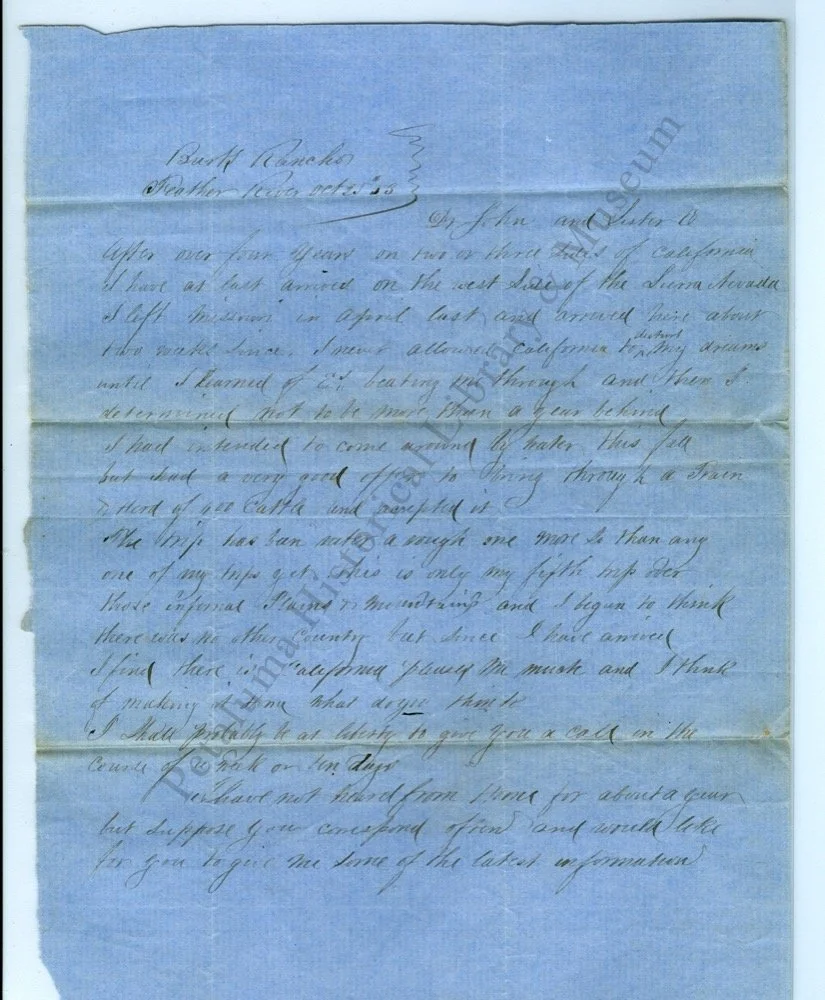 Burks Rancho
Feather River Oct 25th 53
Dr John and Sister
After over four years on two or three sides of California
I have at last arrived on the west side of the Sierra Nevada
I left Missouri in April last and arrived here about
two weaks since. I never allowed California to disturb my dreams
until I learned of beating me through and then I
determined not to be more than a year behind
I had intended to come around by water this fall
but had a very good offer to bring through a Train
& Herd of 400 Cattle and accepted it
The trip has ban rather a rough one more so than any
one of my trips yet. This is only my fifth trip over
those infernal Plains & mountains and I began to think
there was no other Country but since I have arrived
I find there is California pleases me much and I think
of making it home what do you think
I shall probably be at liberty to give you a call in the
course of a week or ten days
I have not heard from home for about a year
but suppose you correspond often and would like
for you to give me some of the latest information
Petaluma Historical Library & Museum